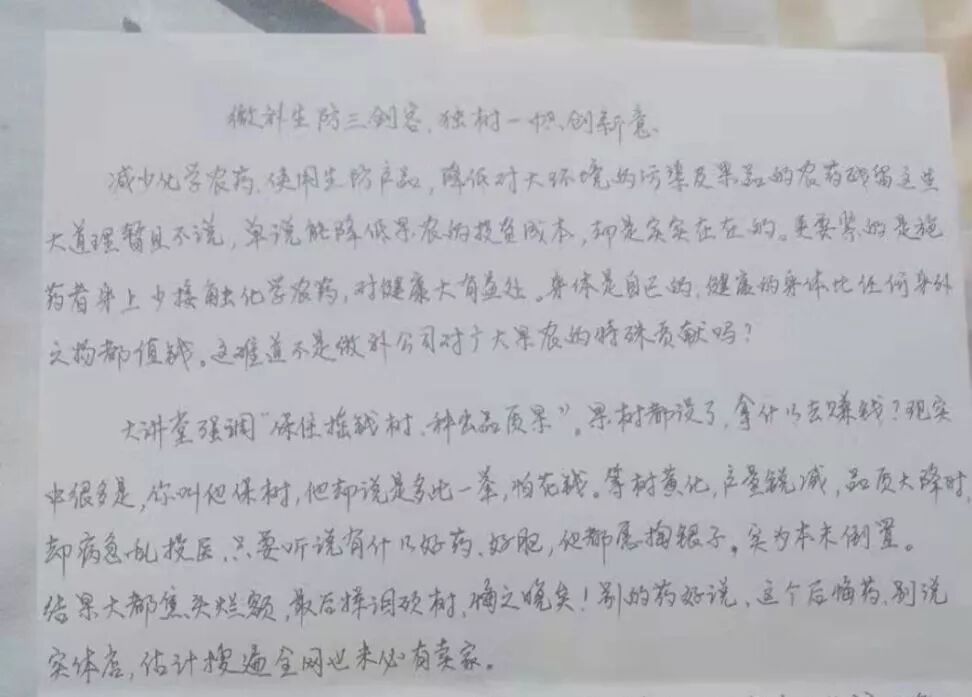 微补生防三剑客，独树一帜创新意。
减少化学农药，使用生防产品，降低对大环境的污染及果品的农药残留这些
大道理暂且不说，单说能降低果农的投资成本，却是实实在在的。更要紧的是施
药者身上少接触化学农药，对健康大有益处。身体是自己的，健康的身体比任何身外
之物都值钱。这难道不是微补公司对广大果农的特殊贡献吗？
大讲堂强调“保住摇钱树、种出品质果”。果树都没了，拿什么去赚钱？现实
中很多是，你叫他保树，他却说是多此一举，怕花钱。等树黄化，产量锐减，品质大降时，
却病急乱投医，只要听说有什么好药、好肥，他都愿掏银子。实为本末倒置。
结果大都焦头烂额，最后挥泪砍树，悔之晚矣！别的药好说，这个后悔药，别说
实体店，估计搜遍全网也未必有卖家。